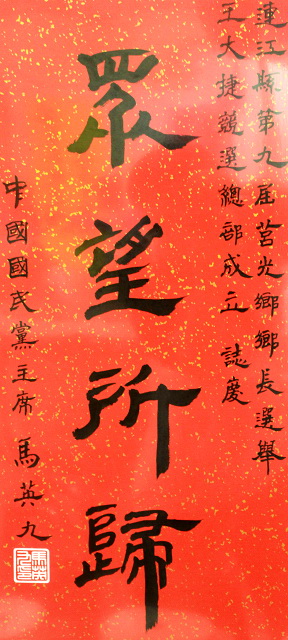 連江縣第九屆莒光鄉鄉長選舉
王大捷競選總部成立 誌慶
眾望所歸
中國國民黨主席 馬英九